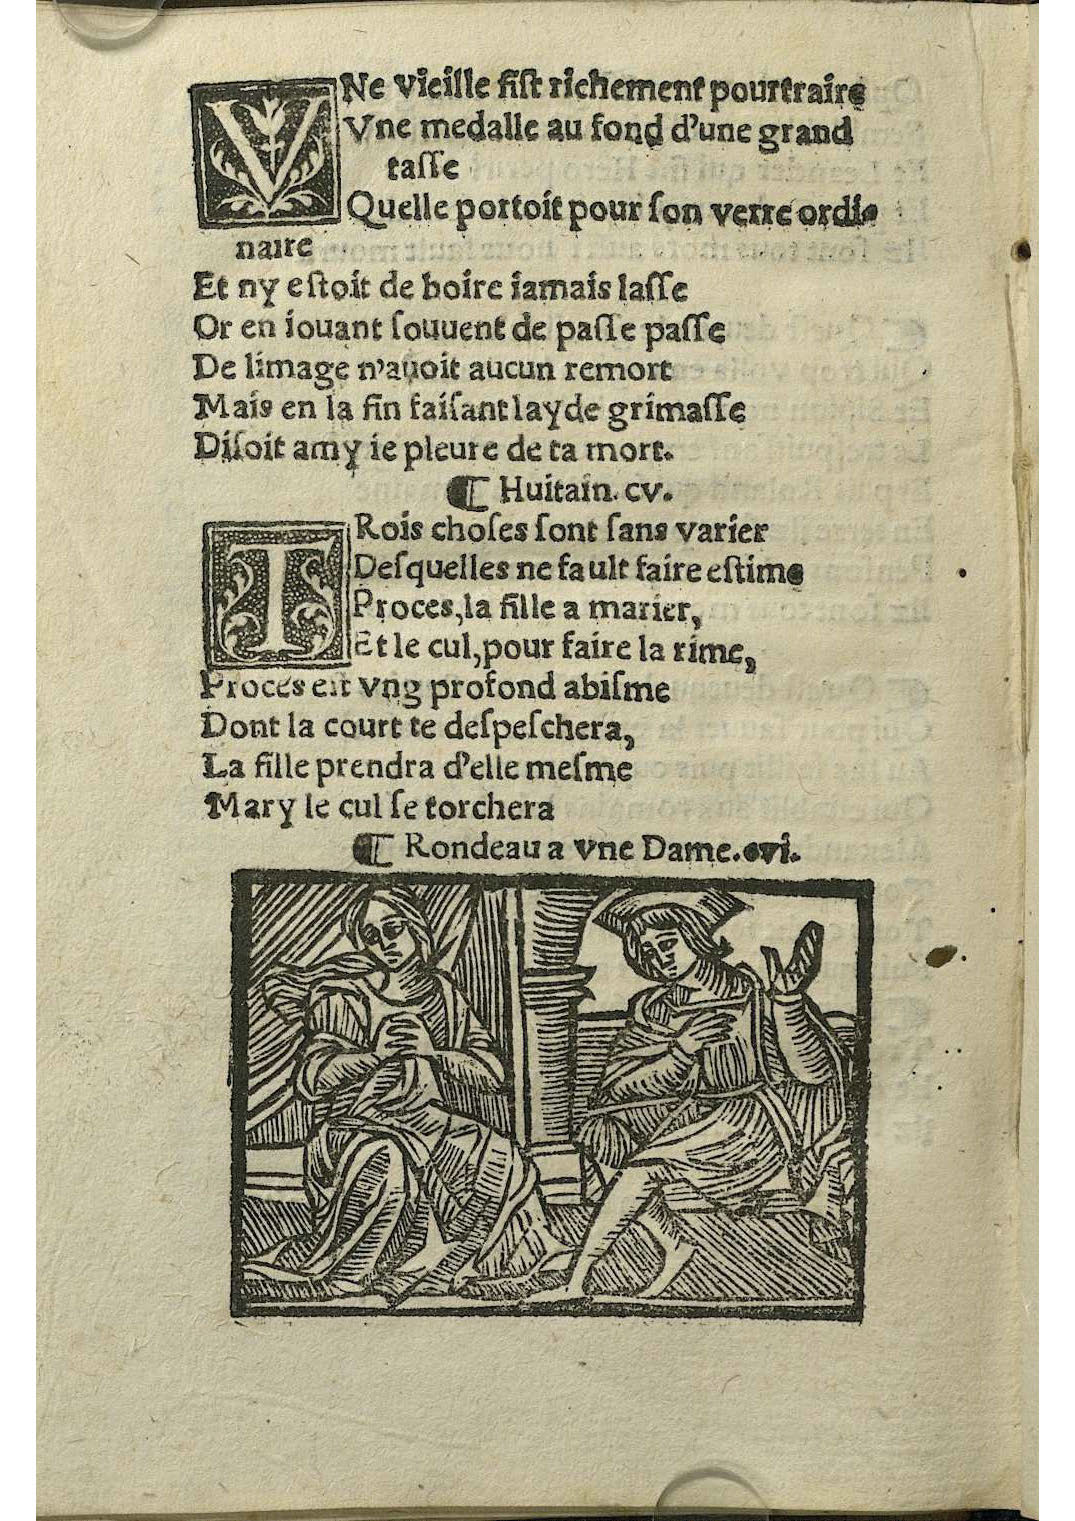 VNe vieille fist richement pourtraire
Vne medalle au fond d'une grand
tasse
Quelle portoit pour son verre ordi-
naire
Et ny estoit de boire iamais lasse
Or en iouant souuent de passe passe
De limage n'auoit aucun remort
Mais en la fin faisant layde grimasse
Disoit amy ie pleure de ta mort.
¶ Huitain. cv.
TRois choses sont sans varier
Desquelles ne fault faire estime
Proces, la fille a marier,
Et le cul, pour faire la rime,
Proces est vng profond abisme
Dont la court te despeschera,
La fille prendra d'elle mesme
Mary le cul se torchera
¶ Rondeau a vne Dame. cvi.